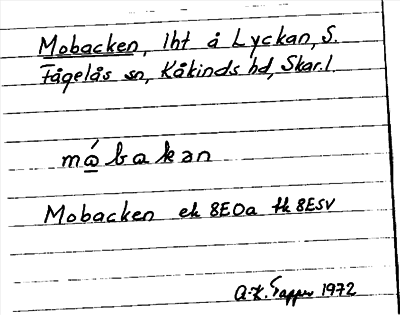 Mobacken, lht å Lyckan, S.
Fågelås sn, Kåkinds hd, Skar.l.
mábakən
Mobacken ek 8E0a fk 8ESV
A-K. Tapper 1972